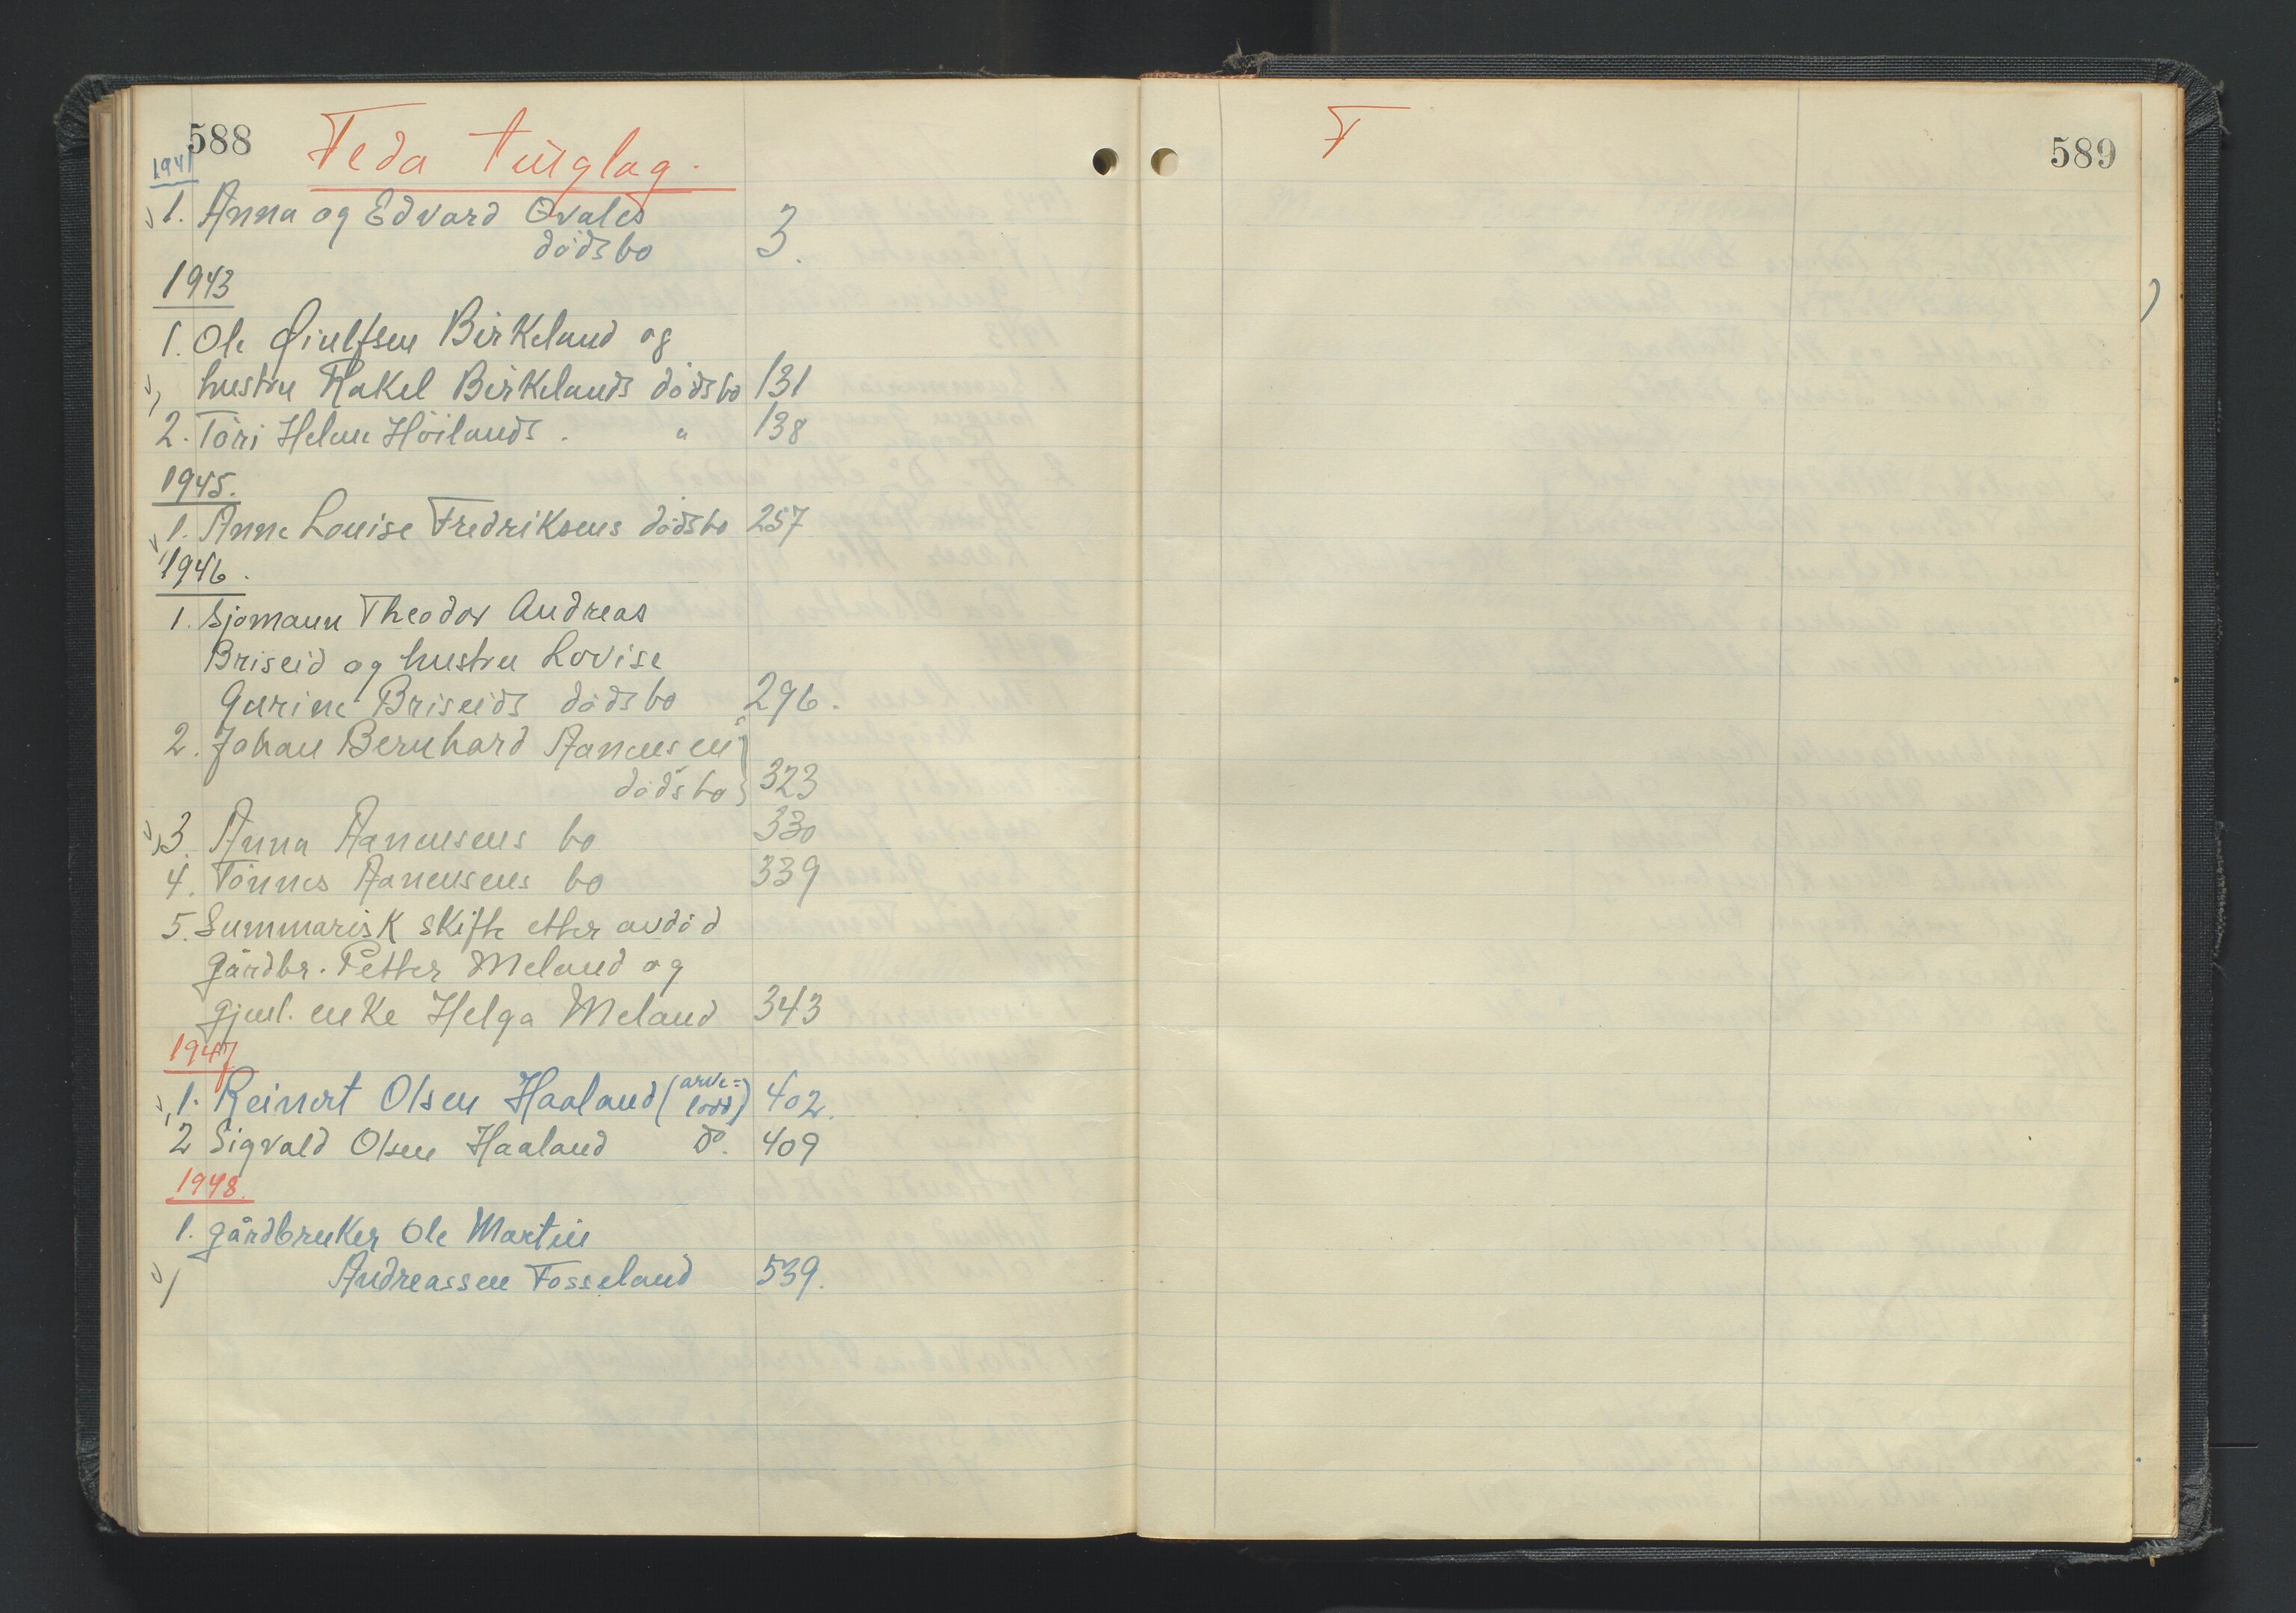 588
Feda tinglag.
1941
1. Anna og Edvard Kvales
dödsbo 3.
1943
1. Ole Øiulfsen Birkeland og
hustru Rakel Birkelands dödsbo 131
2. Töri Helene Höilands. " 138
1945.
1. Anne Louise Fredriksens dödsbo 257
1946.
1. Sjömann Theodor Andreas
Briseid og hustru Lovise
Gurine Briseids dödsbo 296.
2. Johan Bernhard Aanensens
dödsbo 323
3. Anna Aanensens bo 330
4. Tönnes Aanensens bo 339
5. Summarisk skifte etter avdöd
gårdbr. Petter Meland og
gjenl. enke Helga Meland 343
1947
1. Reinert Olsen Haaland (arve=
lodd) 402.
2 Sigvald Olsen Haaland do. 409
1948.
1. gårdbruker Ole Martin
Andreassen Fosseland 539.
F
589